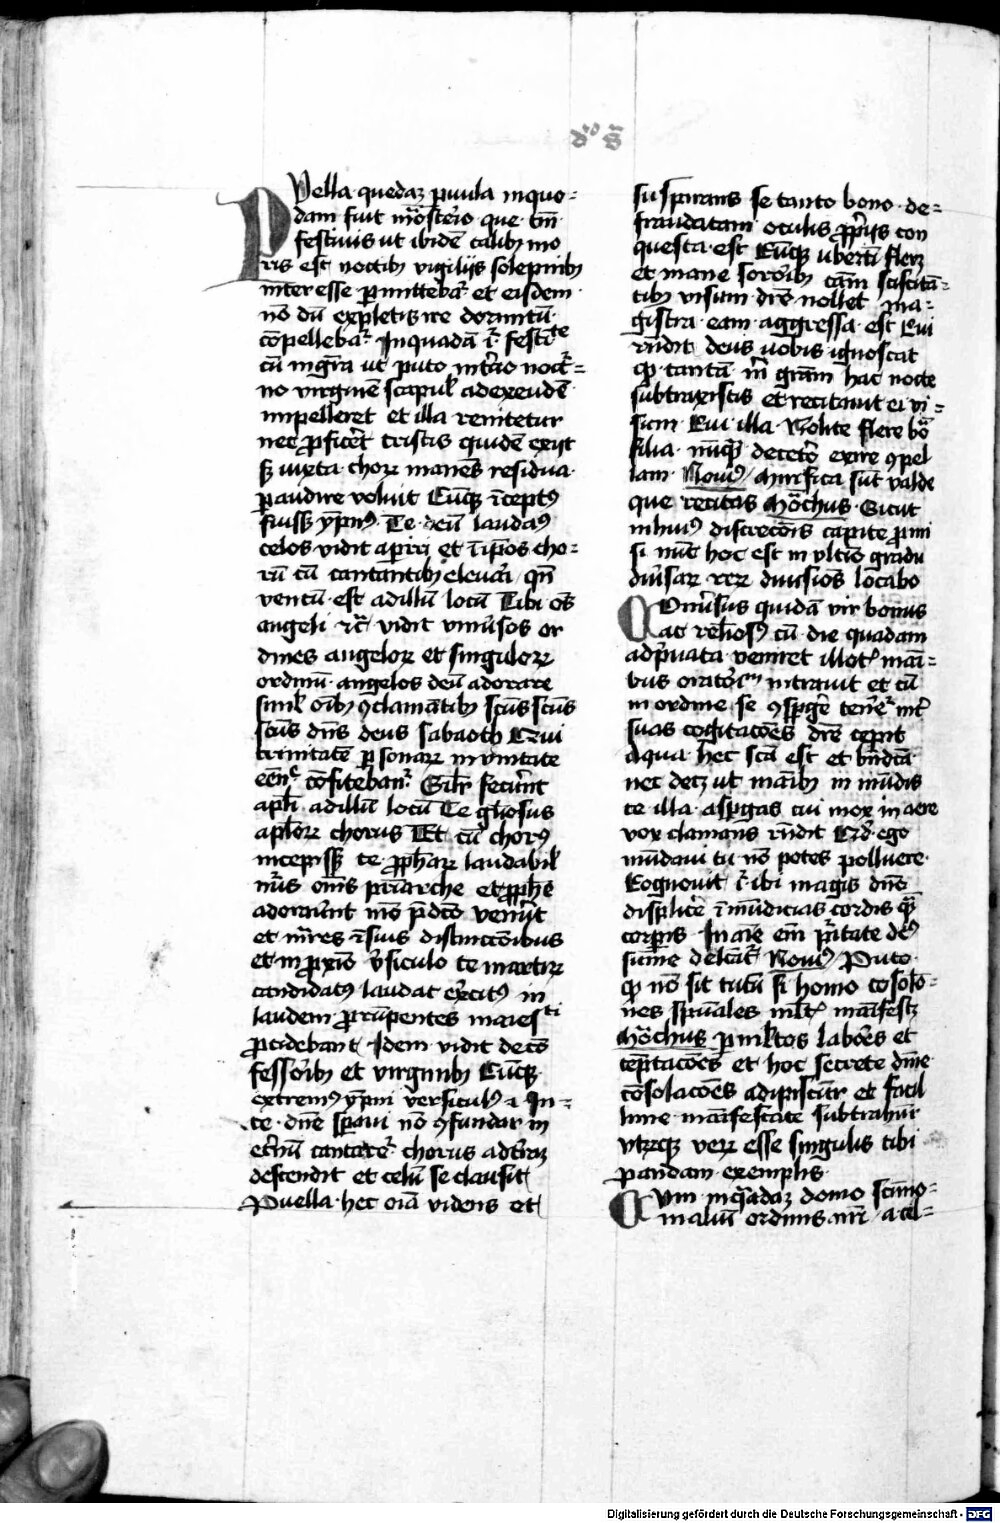 PVella quedaʒ ꝑuula in quo⸗
dam fuit mo̅ste̅rio que tm̅
festiuis ut ibide̅ talibꝫ mo
ris est noctibꝫ vigilijs sole̅pnibꝫ
interesse ꝑmitteba̅t᷑ et eisdem
no̅ du̅ expletis ire dormitu̅
co̅pelleba̅t᷑ In quada̅ g̊ festi̅te
cu̅ mgr̅a ut puto inte̅rio noct᷑⸗
no virgine̅ scapul̓ ad exeude̅
impelleret et illa renitetur
nec ꝓfice̅t tristis quide̅ exijt
sꝫ iuxta choꝝ mane̅s residua
ꝑaudire voluit Cu̅qꝫ i̅ceptꝰ
fuissꝫ ypn̅ꝰ Te deu̅ laudaꝰ
celos vidit aperi et i̅ip̅os cho⸗
ru̅ cu̅ cantantibꝫ eleua̅ri qn̅
ventu̅ est ad illu̅ locu̅ Tibi o̅s
angeli ⁊c̅ vidit vniu̅sos or
dines angeloꝝ et singuloꝝ
ordinu̅ angelos deu̅ adorare
simil̓ oi̅bꝫ ꝯclama̅tibꝫ sc̅us sc̅us
sc̅us dn̅s deus sabaoth Qui
trinitate̅ ꝑsonaꝝ in vnitate
een̅c̅ co̅fiteban̅t᷑ Silr̅ fece̅rt
apl̅i ad illu̅ locu̅ Te gl̅iosus
apl̅oꝝ chorus Et cu̅ chorꝰ
incepissꝫ te ꝓph̅aꝝ laudabil̓
nu̅s om̅s pri̅arche et ꝓph̅e
adoraue̅nt mo̅ p̅dc̅o vene̅rt
et mr̅es i̅ suis distincc̅onibus
et in ꝓxio̅ v̅siculo te martiꝝ
candidatꝰ laudat exe̅rcitꝰ in
laudem ꝓru̅pentes maiesti
ꝓcidebant Idem vidit de co̅
fessoribꝫ et virginibꝫ Cu̅qꝫ
extremꝰ ypn̅i versiculꝰ i̅ In⸗
te dn̅e sp̅aui no̅ ꝯfundar in
et̅nu̅ cantare᷑ chorus ad te̅rꝫ
descendit et celu̅ se clausit
Puella hec oi̅a videns et
suspirans se tanto bono de⸗
fraudatam oculis ꝓprijs con
questa est Cu̅qꝫ uberti̅ flerꝫ
et mane sororibꝫ ca̅m sciscita̅⸗
tibꝫ visum dr̅e nollet ma⸗
gistra eam aggressa est Cui
rn̅dit deus uobis ignoscat
qꝫ tanta̅ m̅ gra̅m hac nocte
subtraxistis et recitauit ei vi⸗
sum Cui illa Nolite flere bo̅
filia nu̅qꝫ decete̅ro exire ꝯpel
lam Nouiꝰ Mirifica sut̅ valde
que recitas Mo̅chus Sicut
in huiꝰ discrec̅onis capite ꝓmi
si nu̅c hoc est in vltio̅ gradu
diu̅saꝝ reꝝ diuisio̅s locabo
COnu̅sus quida̅ vir bonus
ac rel̅iosꝰ cu̅ die quadam
ad p̅uata veniret illot᷑ mai̅⸗
bus oratoriu̅ intrauit et cu̅
in ordine se ꝯsp̅ge̅ tene̅r᷑ int̅
suas cogitac̅oe̅s dr̅e cepit
Aqua hec sc̅a est et bn̅dc̅a
nec decꝫ ut mai̅bꝫ in mu̅dis
te illa aspgas cui mox in aere
vox clamans rn̅dit Q̅d ego
mu̅daui tu no̅ potes polluere
Cognouit g̊ ibi magis dn̅o
displice̅ i̅mu̅dicias cordis qꝫ
corpis In ai̅e em̅ p̅itate deꝰ
sum̅e delc̅at᷑ Nouiꝰ Puto
qꝫ no̅ sit tutu̅ si̅ homo co̅solo̅⸗
nes spu̅ales ml̅t᷑ mai̅festꝫ
Mo̅chus Pmltos labo̅es et
te̅ptac̅oe̅s et hoc secrete diui̅e
co̅solac̅oe̅s adipiscu̅tr et facil
lime mai̅festate subtrahu̅r
vtrꝫqꝫ veꝝ esse singulis tibi
pandam exemplis
CVm in q̅adaꝫ domo sc̅imo⸗
nialiu̅ ordinis nr̅i a cel⸗